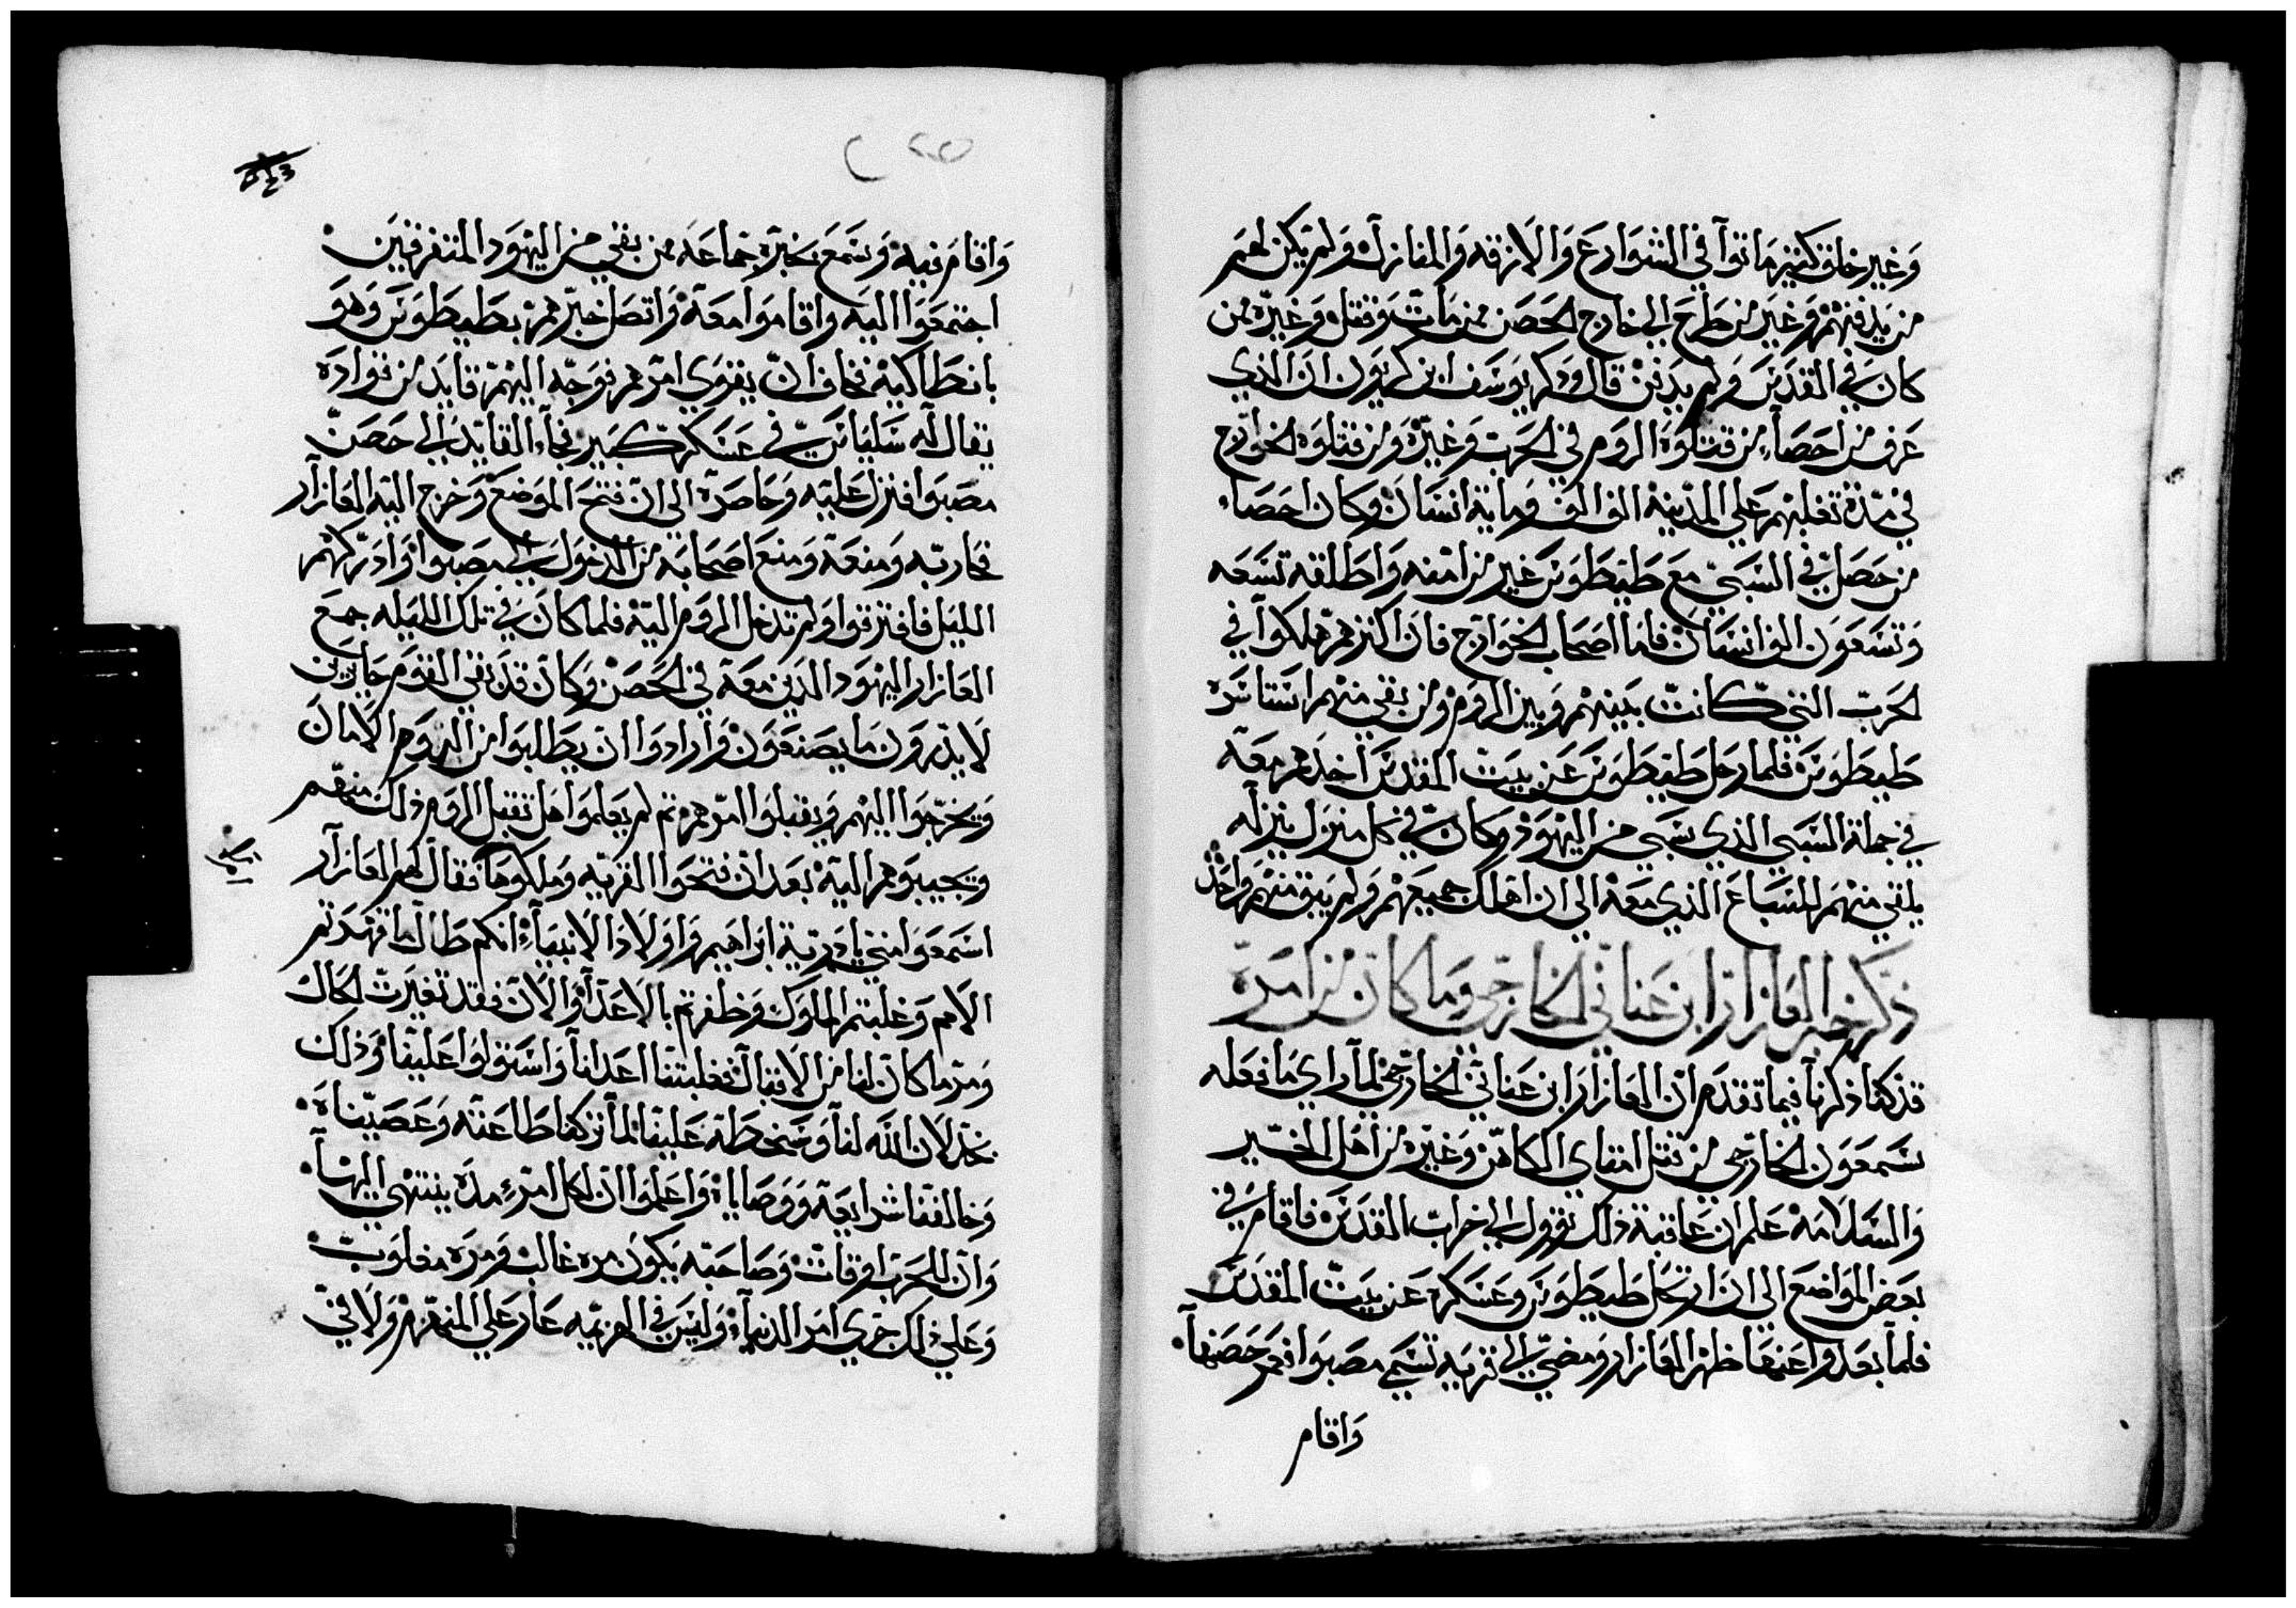 وغير خلق كثير ماتوا في الشوارع والازقه والمنازل ولم يكن لهم
من يدفنهم وغير من طرح الى خارج الحصن ممن مات وقتل وغيره ممن
كان في القدس ولم يدفن قال وذكر يوسف ابن كريون ان الذي
عرف من احصاء من قتلوه الروم في الحرب وغيره ومن قتلوه الخوارج
في مدة تغلبهم علي المدينة الف الف وماية انسان وكان احصاء
من حصل في السبي مع طيطوس غير من امنه واطلقه تسعه
وتسعون الف انسان فاما اصحاب الخوارج فان اكثرهم هلكوا في
الحرب التي كانت بينهم وبين الروم ومن بقي منهم استاسره
طيطوس فلما رحل طيطوس عن بيت المقدس اخذهم معه
في جملة السبي الذي سبي من اليهود وكان في كل منزل ينزله
يلقي منهم للسباع الذي معه الى ان اهلك جميعهم ولم يبق منهم واحد
ذكر خبر العازار ابن عناني الخارجي وما كان من امره
قد كنا ذكرنا فيما تقدم ان العازار ابن عناني الخارجي لما راي ما فعله
شمعون الخارجي من قتل امتاي الكاهن وغيره من اهل الخير
والسلامه علم ان عاقبة ذلك تؤول الى خراب القدس فاقام في
بعض المواضع الى ان ارتحل طيطوس وعسكره عن بيت المقدس
فلما بعدوا عنها ظهر العازار ومضي الى قريه تسمي مصبوا فعمر حصنها
واقام
واقام فيه وسمع بخبره جماعه ممن بقي من اليهود المتفرقين
اجتمعوا اليه واقاموا معه واتصل خبرهم بطيطوس وهو
بانطاكيه فخاف ان يقوي امرهم فوجه اليهم قايد من قواده
يقال له سلياس في عسكر كبير فجاء القايد الى حصن
مصبوا فنزل عليه وحاصره الى ان فتح الموضع وخرج اليه العازار
فحاربه ومنعه ومنع اصحابه من الدخول الى مصبوا وادركهم
الليل فافترقوا ولم تدخل الروم اليه فلما كان في تلك الليله جمع
العازار اليهود الذين معه في الحصن وكان قد بقي القوم حايرين
لا يدرون ما يصنعون وارادوا ان يطلبوا من الروم الامان
ويخرجوا اليهم ويقبلوا امرهم ثم لم يعلموا هل تقبل الروم ذلك منهم
ويجيبوهم اليه بعد ان فتحوا القريه وملكوها فقال لهم العازار
اسمعوا مني يا ذرية ابراهيم واولاد الانبياء انكم طال ما قهرتم
الامم وغلبتم الملوك وظفرتم بالاعداء والان فقد تغيرت الحال
ومر ما كان لنا من الاقبال فغلبتنا اعدانا واستولوا علينا وذلك
بخذلان الله لنا وسخطه علينا لما تركنا طاعته وعصيناه
وخالفنا شرايعه ووصاياه واعلموا ان لكل امرء مده ينتهي اليها
وان للحرب اوقات وصاحبه يكون مره غالب ومره مغلوب
وعلي ذلك جري امر الدنيا وليس في الهزيمه عار علي المنهزم ولا في